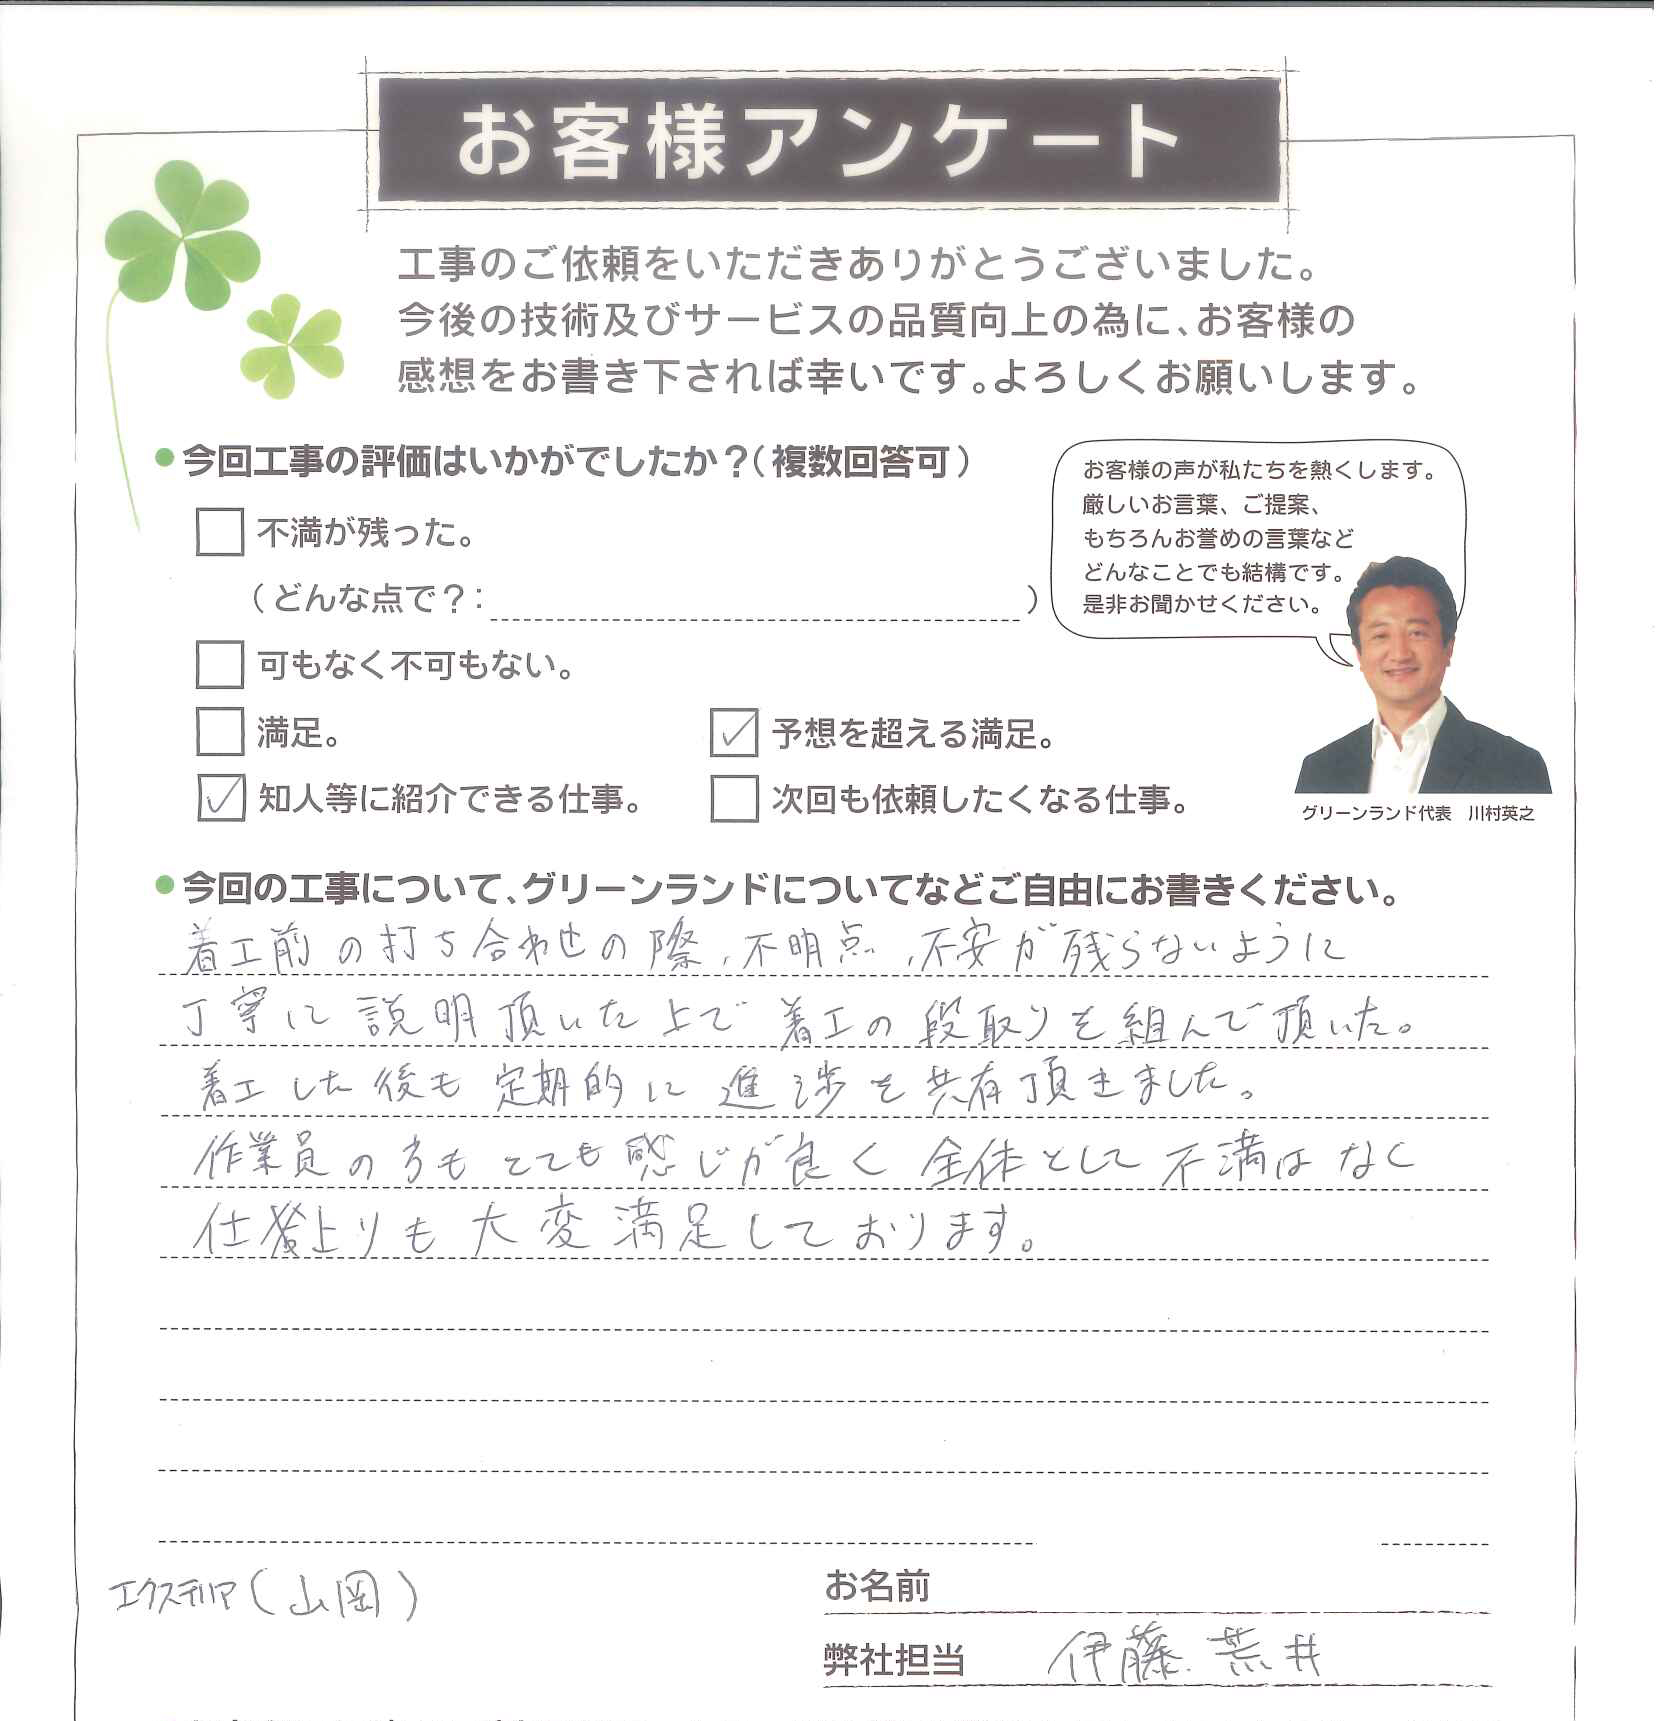 お客様アンケート
工事のご依頼をいただきありがとうございました。
今後の技術及びサービスの品質向上の為に、お客様の
感想をお書き下されば幸いです。よろしくお願いします。
●今回工事の評価はいかがでしたか？（複数回答可）
お客様の声が私たちを熱くします。
厳しいお言葉、ご提案、
もちろんお誉めの言葉など
どんなことでも結構です。
是非お聞かせください。
□ 不満が残った。
（どんな点で？： ）
□ 可もなく不可もない。
□ 満足。
☑ 予想を超える満足。
☑ 知人等に紹介できる仕事。
□ 次回も依頼したくなる仕事。
グリーンランド代表 川村英之
●今回の工事について、グリーンランドについてなどご自由にお書きください。
着工前の打ち合わせの際、不明点、不安が残らないように
丁寧に説明頂いた上で着工の段取りを組んで頂いた。
着工した後も定期的に進渉を共有頂きました。
作業員の方もとても感じが良く全体として不満はなく
仕上りも大変満足しております。
エクステリア（山岡）
お名前
弊社担当 伊藤、荒井